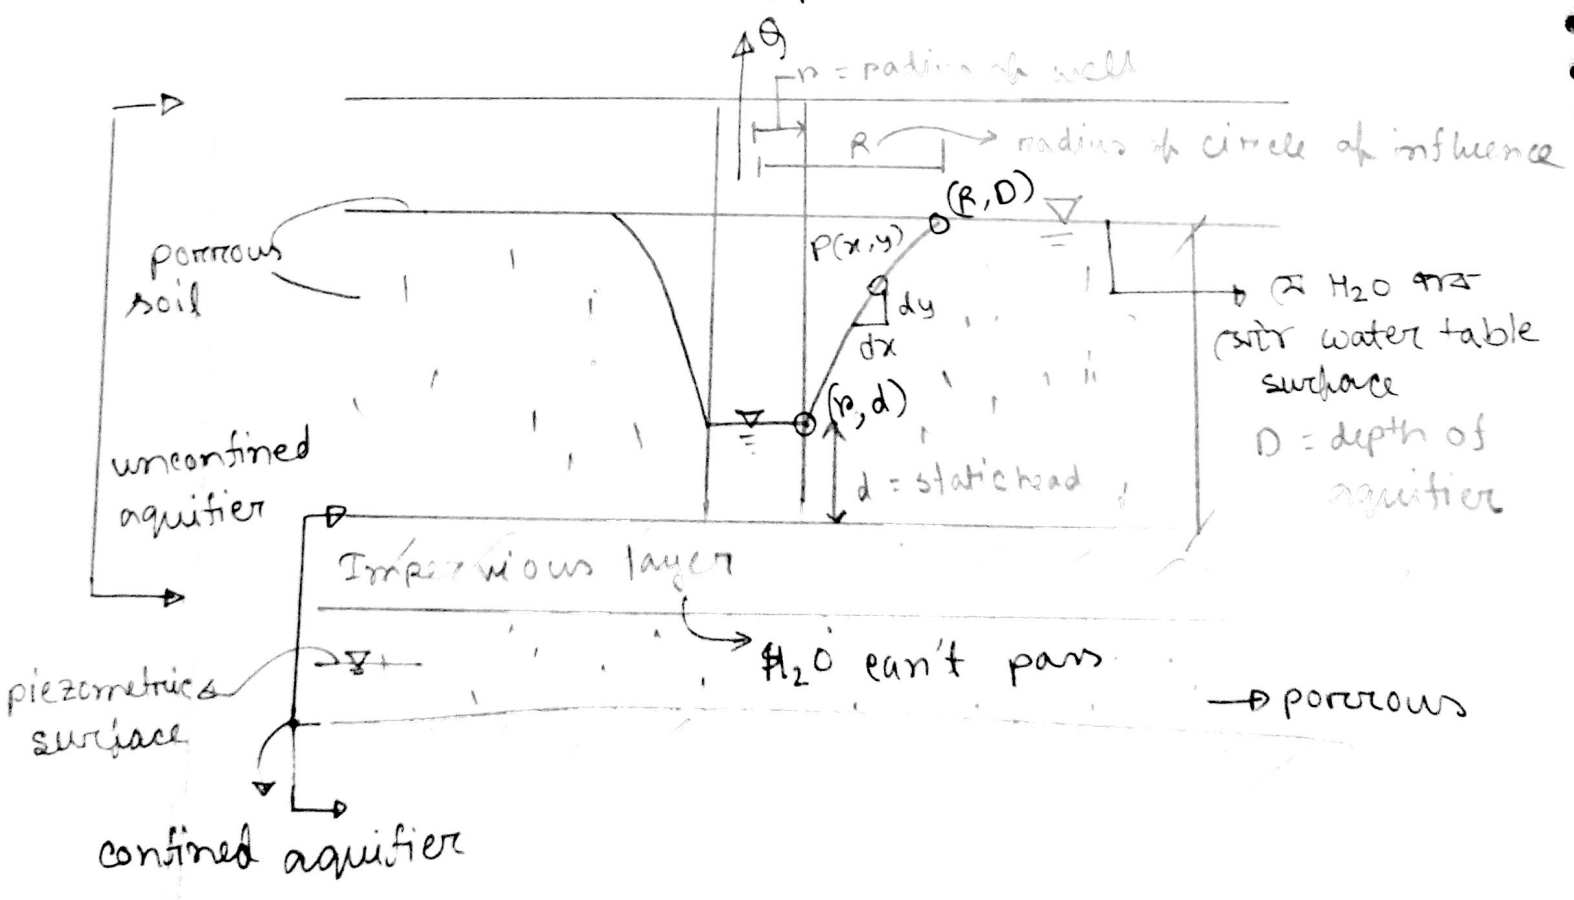 Q
r = radius of well
R
radius of circle of influence
(R, D)
P(x, y)
porrous
soil
dy
dx
H₂O
water table
surface
(r, d)
D = depth of
aquifier
unconfined
aquifier
d = static head
Impervious layer
H₂O can't pass
piezometric
surface
porrous
confined aquifier